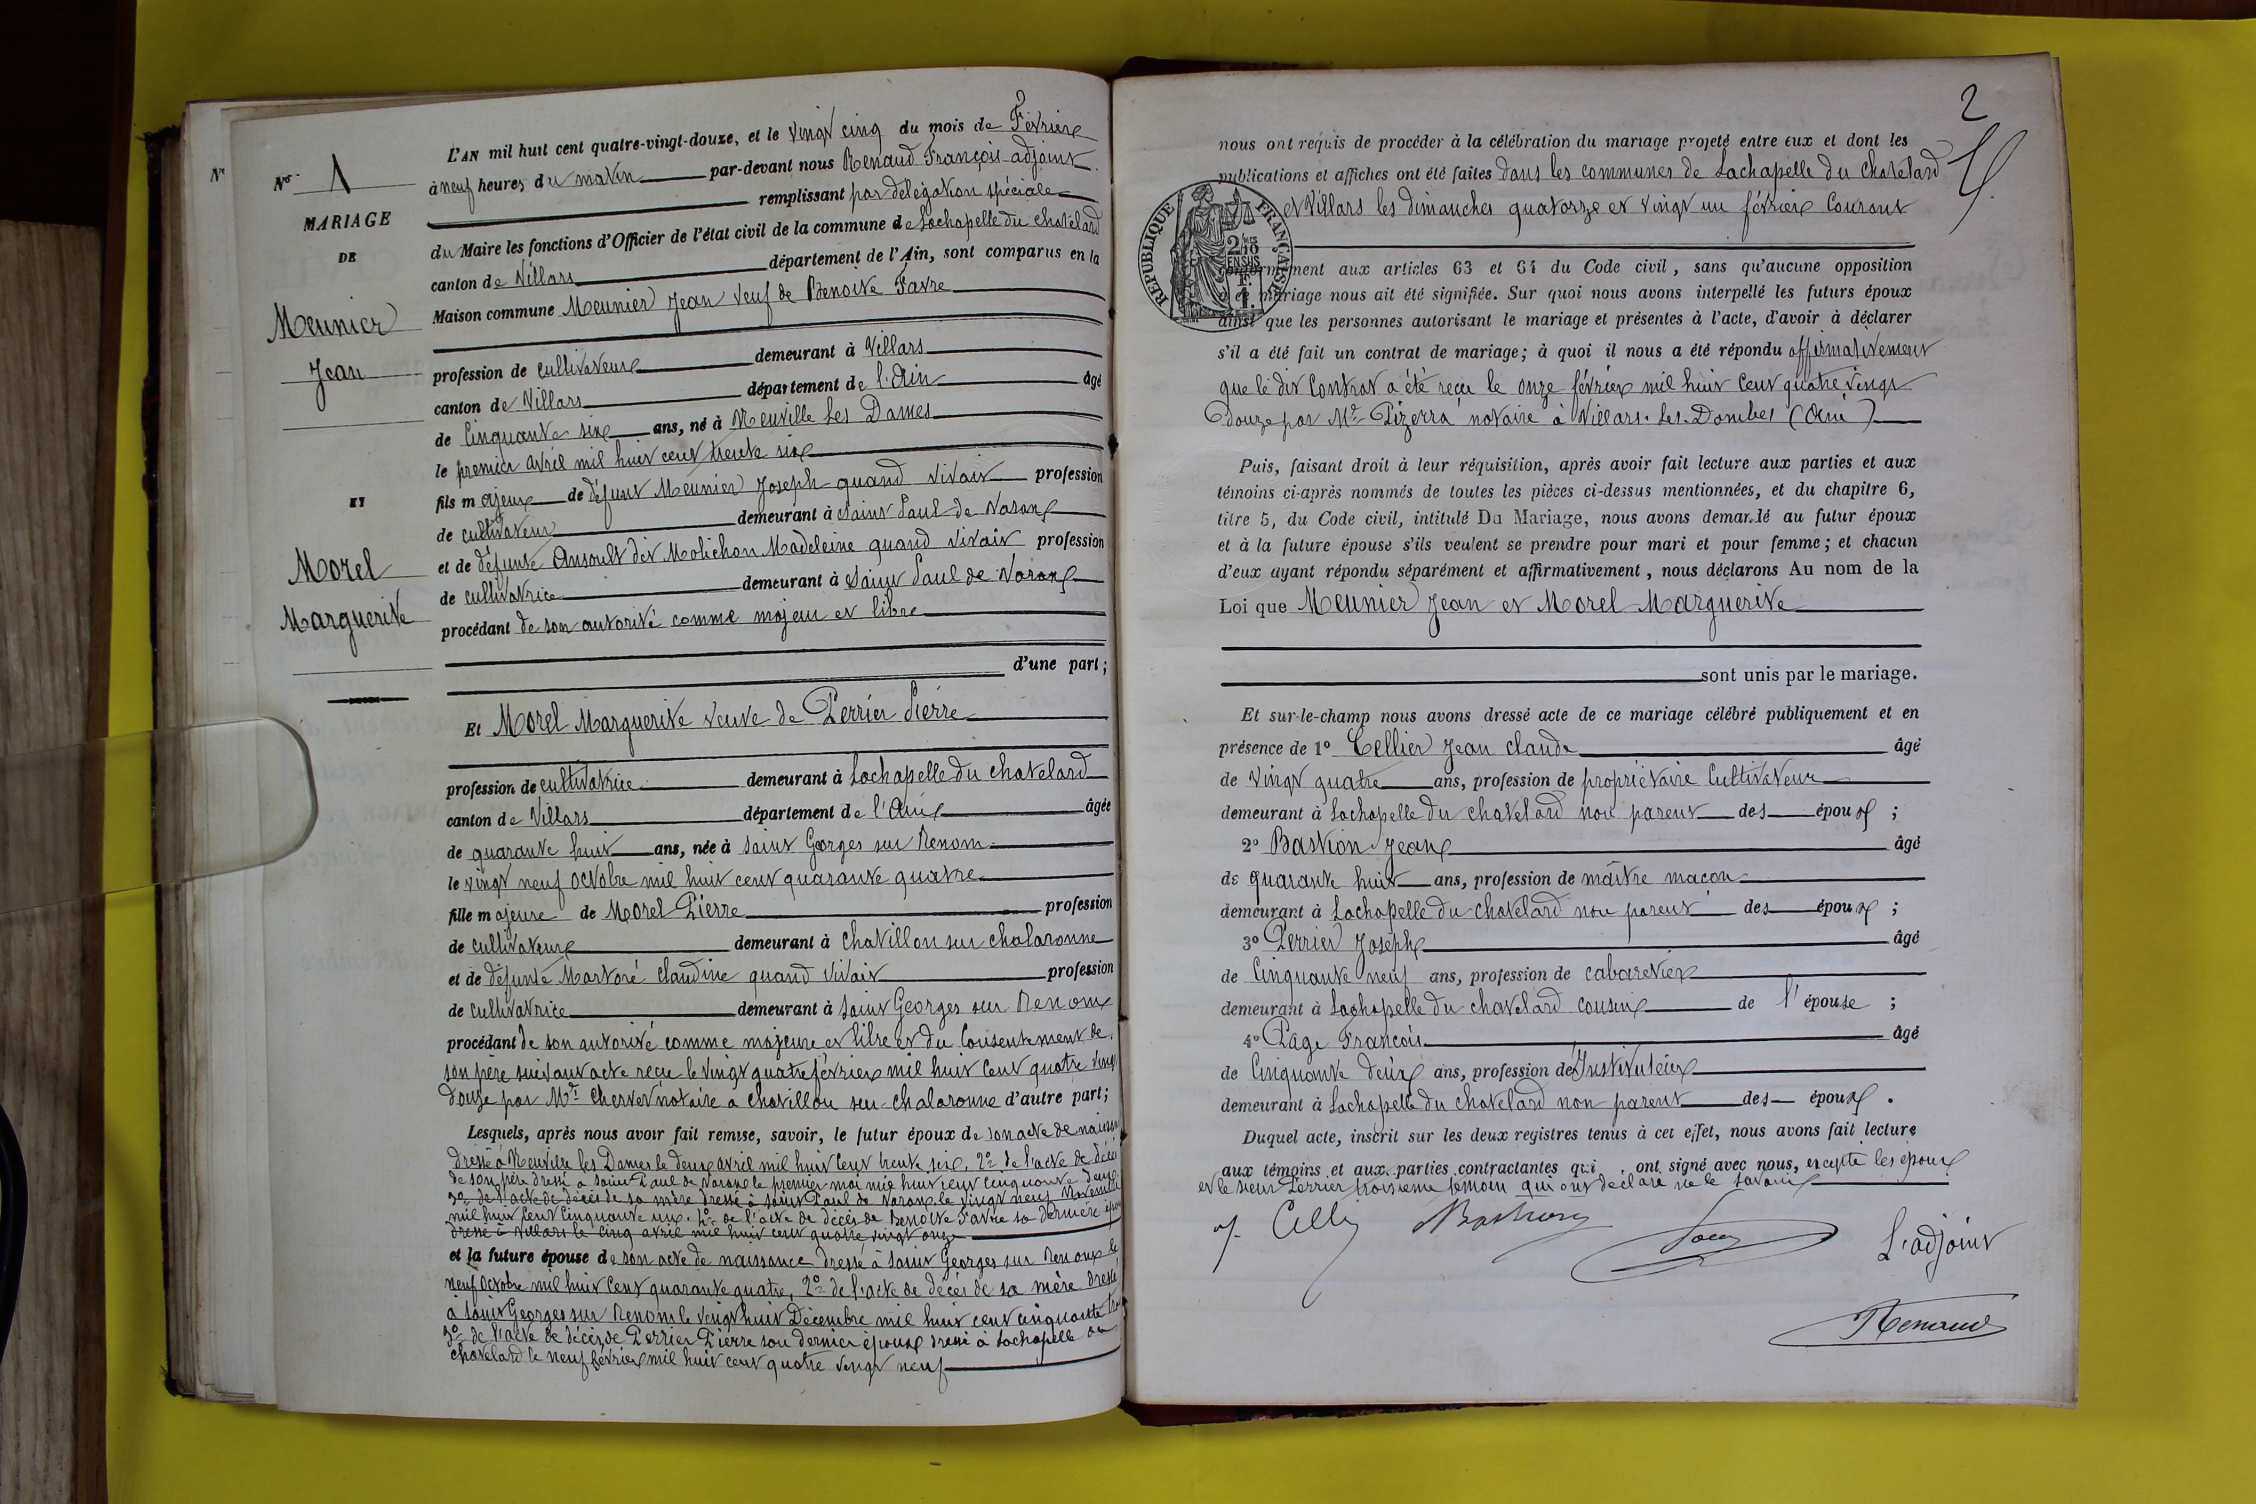 L'AN mil huit cent quatre-vingt-douze, et le vingt cinq du mois de Février
à neuf heures du matin par-devant nous Renaud François adjoint
remplissant par délégation spéciale
du Maire les fonctions d'Officier de l'état civil de la commune de Lachapelle du chatelard
canton de Villars département de l'Ain, sont comparus en la
Maison commune Meunier Jean veuf de Benoite Favre
profession de cultivateur demeurant à Villars
canton de Villars département de l'Ain âgé
de Cinquante six ans, né à Neuville les Dames
le premier avril mil huit cent trente six
fils majeur de défunt Meunier Joseph quand vivait profession
de cultivateur demeurant à Saint Paul de Varax
et de défunte Ansoult dit Molichon Madeleine quand vivait profession
de cultivatrice demeurant à Saint Paul de Varax
procédant de son autorité comme majeur et libre
d'une part;
Nº 1
MARIAGE
DE
Meunier
Jean
ET
Morel
Marguerite
Et Morel Marguerite veuve de Perrier Pierre
profession de cultivatrice demeurant à Lachapelle du chatelard
canton de Villars département de l'Ain âgée
de quarante huit ans, née à Saint Georges sur Renom
le vingt neuf octobre mil huit cent quarante quatre
fille majeure de Morel Pierre profession
de cultivateur demeurant à chatillon sur chalaronne
et de défunte Martoré claudine quand vivait profession
de cultivatrice demeurant à Saint Georges sur Renom
procédant de son autorité comme majeure et libre et du Consentement de
son père suivant acte reçu le vingt quatre février mil huit cent quatre vingt
douze par Mr Chervet notaire à chatillon sur chalaronne d'autre part;
Lesquels, après nous avoir fait remise, savoir, le futur époux de son acte de naissance
dressé à Neuville les Dames le deux avril mil huit cent trente six, 2º de l'acte de décès
de son père dressé à Saint Paul de Varax le premier mai mil huit cent cinquante deux
3º de l'acte de décès de sa mère dressé à Saint Paul de Varax le vingt neuf Novembre
mil huit cent cinquante un. 4º de l'acte de décès de Benoite Favre sa dernière épouse
dressé à Villars le Cinq avril mil huit cent quatre vingt onze
et la future épouse de son acte de naissance dressé à Saint Georges sur Renom le
neuf octobre mil huit cent quarante quatre, 2º de l'acte de décès de sa mère dressé
à Saint Georges sur Renom le vingt huit Décembre mil huit cent cinquante trois
3º de l'acte de décès de Perrier Pierre son dernier époux dressé à Lachapelle du
chatelard le neuf février mil huit cent quatre vingt neuf
2
nous ont requis de procéder à la célébration du mariage projeté entre eux et dont les
publications et affiches ont été faites dans les communes de Lachapelle du Chatelard
et Villars les dimanches quatorze et vingt un février Courant
RÉPUBLIQUE FRANÇAISE
2/10 EN SUS
1 F.
conformément aux articles 63 et 64 du Code civil, sans qu'aucune opposition
à ce mariage nous ait été signifiée. Sur quoi nous avons interpellé les futurs époux
ainsi que les personnes autorisant le mariage et présentes à l'acte, d'avoir à déclarer
s'il a été fait un contrat de mariage; à quoi il nous a été répondu affirmativement
que le dit Contrat a été reçu le onze février mil huit cent quatre vingt
Douze par Mr Pizerra notaire à Villars-les-Dombes (Ain)
Puis, faisant droit à leur réquisition, après avoir fait lecture aux parties et aux
témoins ci-après nommés de toutes les pièces ci-dessus mentionnées, et du chapitre 6,
titre 5, du Code civil, intitulé Du Mariage, nous avons demandé au futur époux
et à la future épouse s'ils veulent se prendre pour mari et pour femme; et chacun
d'eux ayant répondu séparément et affirmativement, nous déclarons Au nom de la
Loi que Meunier Jean et Morel Marguerite
sont unis par le mariage.
Et sur-le-champ nous avons dressé acte de ce mariage célébré publiquement et en
présence de 1º Cellier Jean claude âgé
de vingt quatre ans, profession de propriétaire Cultivateur
demeurant à Lachapelle du chatelard non parent des époux ;
2º Bastion Jean âgé
de quarante huit ans, profession de maître maçon
demeurant à Lachapelle du chatelard non parent des époux ;
3º Perrier Joseph âgé
de Cinquante neuf ans, profession de cabaretier
demeurant à Lachapelle du chatelard cousin de l'épouse ;
4º Page François âgé
de Cinquante deux ans, profession de Instituteur
demeurant à Lachapelle du chatelard non parent des époux .
Duquel acte, inscrit sur les deux registres tenus à cet effet, nous avons fait lecture
aux témoins et aux parties contractantes qui ont signé avec nous, excepté les époux
et le sieur Perrier troisième témoin qui ont déclaré ne le savoir
L'adjoint
Renaud